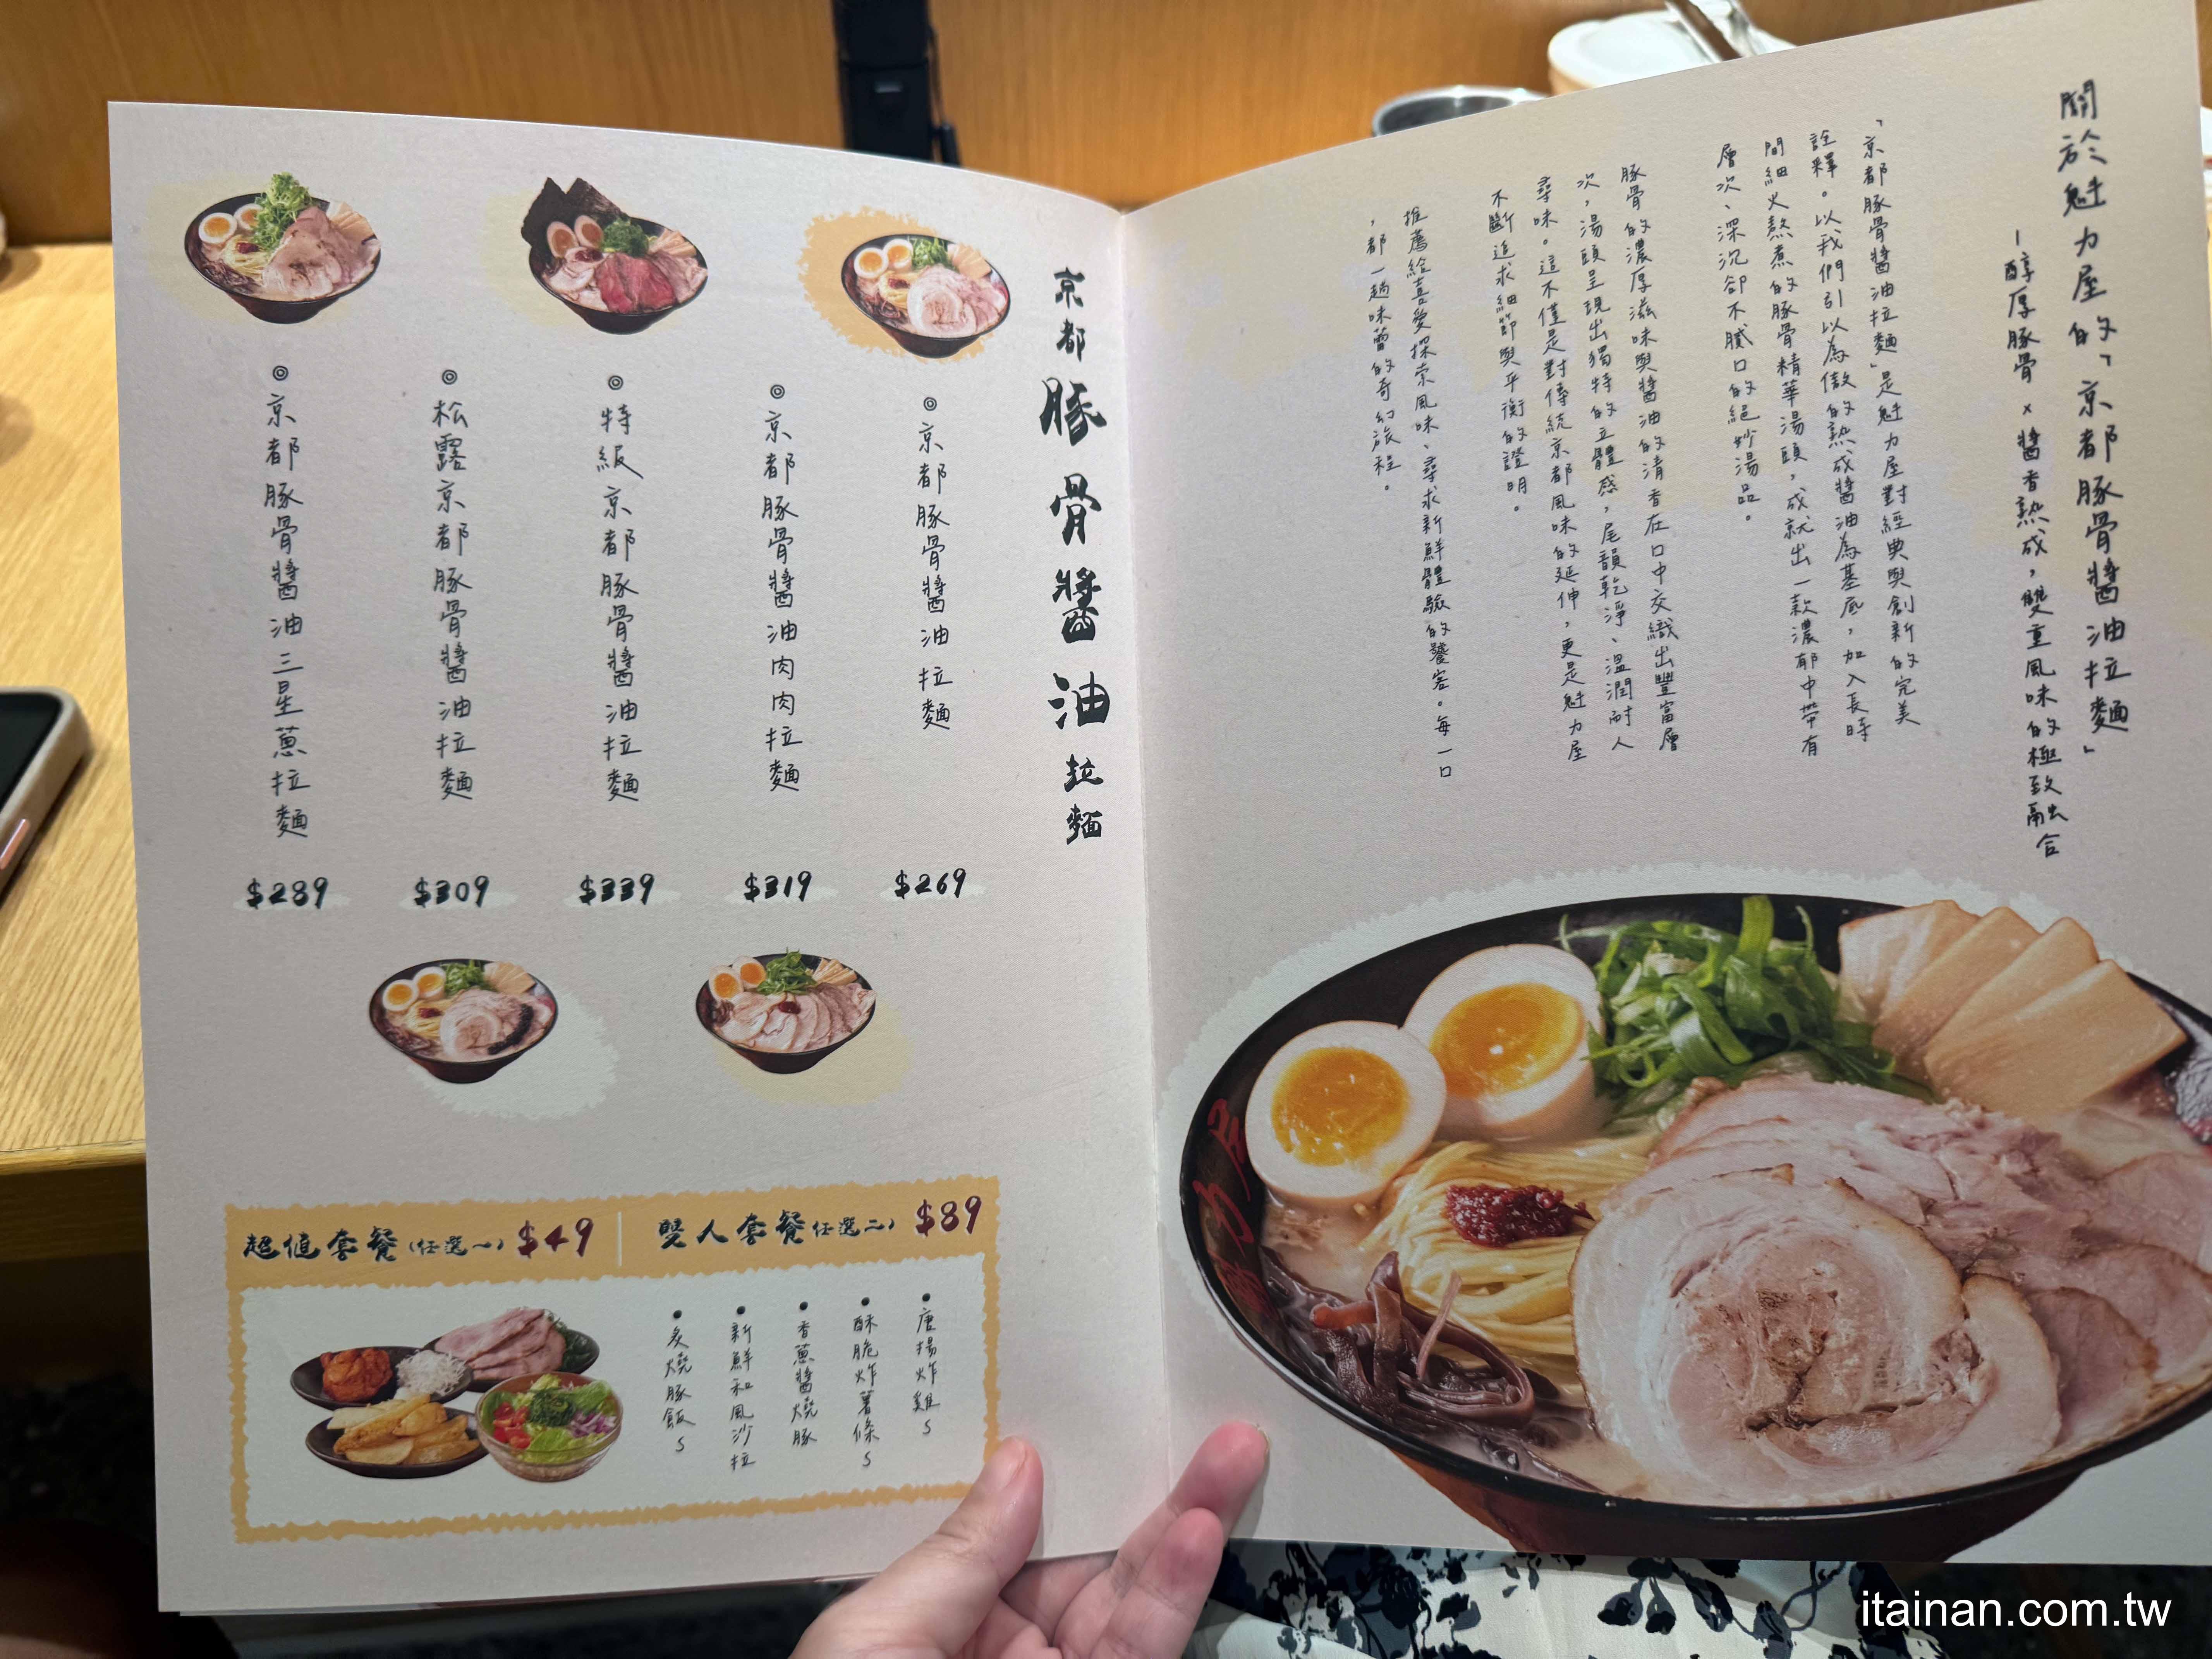 關於魁力屋的「京都豚骨醬油拉麵」
—醇厚豚骨 x 醬香熟成，雙重風味的極致融合
「京都豚骨醬油拉麵」是魁力屋對經典與創新的完美
詮釋。以我們引以為傲的熟成醬油為基底，加入長時
間細火熬煮的豚骨精華湯頭，成就出一款濃郁中帶有
層次、深沉卻不膩口的絕妙湯品。
豚骨的濃厚滋味與醬油的清香在口中交織出豐富層
次，湯頭呈現出獨特的立體感，尾韻乾淨、溫潤耐人
尋味。這不僅是對傳統京都風味的延伸，更是魁力屋
不斷追求細節與平衡的證明。
推薦給喜愛探索風味、尋求新鮮體驗的饕客。每一口
，都一趟味蕾的奇幻旅程。
京都豚骨醬油拉麵
◎京都豚骨醬油拉麵 $269
◎京都豚骨醬油肉肉拉麵 $319
◎特級京都豚骨醬油拉麵 $339
◎松露京都豚骨醬油拉麵 $309
◎京都豚骨醬油三星蔥拉麵 $289
超值套餐(任選一) $49
雙人套餐(任選二) $89
•唐揚炸雞S
•酥脆炸薯條S
•香蔥醬燒豚
•新鮮和風沙拉
•炙燒豚飯S
魁力屋
itainan.com.tw